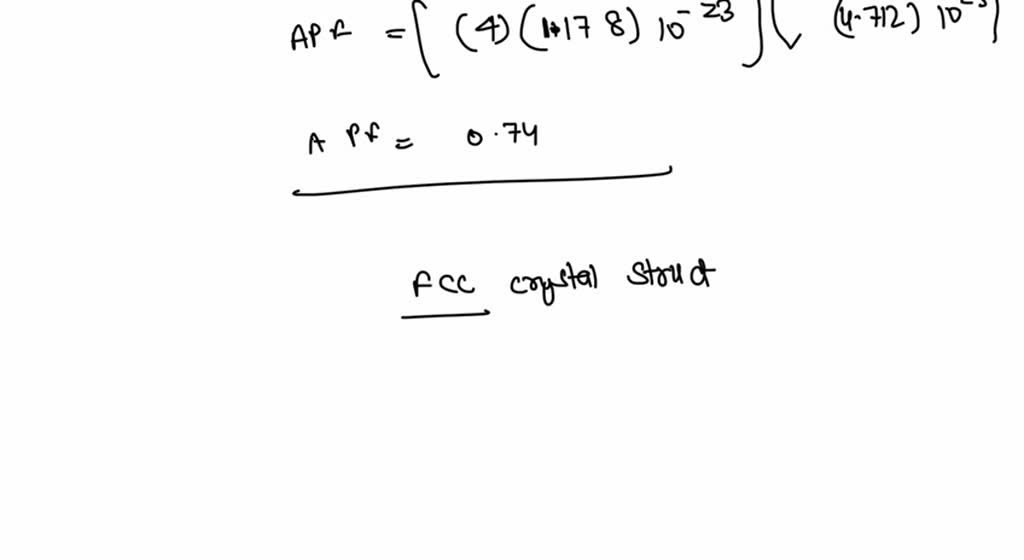 APF = [ (4) (1.178) 10⁻²³ ] ( (4.712) 10
APF = 0.74
FCC crystal struct